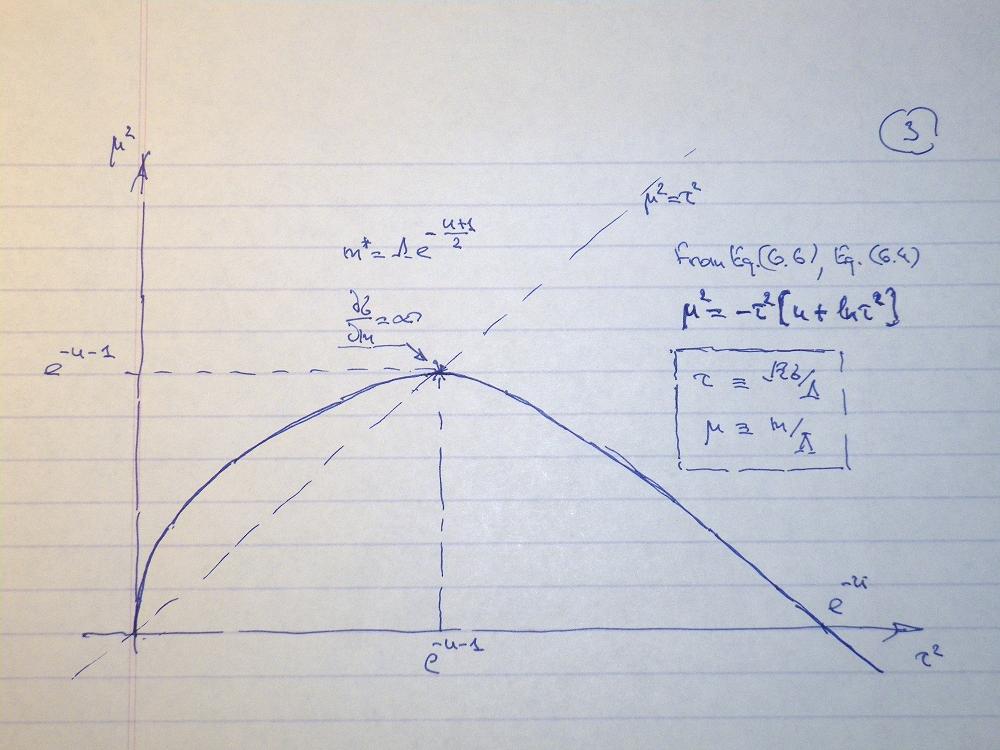 3
μ²
μ²=τ²
m*= Λe^{-\frac{u+1}{2}}
From Eq.(6.6), Eq.(6.4)
μ²= -τ²[u + lnτ²]
∂σ/∂m = ∞
e^{-u-1}
τ ≡ √2σ/Λ
μ ≡ m/Λ
e^{-u}
e^{-u-1}
τ²